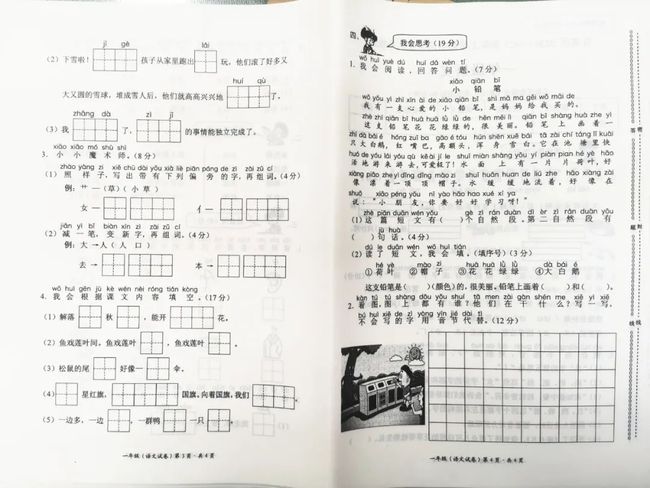 jǐ gè lái
(2)下雪啦! 孩子从家里跑出 玩,他们滚了好多又
huí qù
大又圆的雪球,堆成雪人后,他们就高高兴兴地 。
zhǎng dà zì jǐ
(3)我 了, 的事情能独立完成了。
xiǎo xiǎo mó shù shī
3. 小小魔术师。(8分)
zhào yàng zi xiě chū dài yǒu xià liè piān páng de zì zài zǔ cí
(1)照样子,写出带有下列偏旁的字,再组词。(4分)
例:艹—(草)(小草)
女— 亻—
jiǎn yì bǐ biàn xīn zì zài zǔ cí
(2)减一笔,变新字,再组词。(4分)
例:大→人(人口)
去→ 本→
wǒ huì gēn jù kè wén nèi róng tián kòng
4. 我会根据课文内容填空。(17分)
(1)解落 秋 ,能开 花。
(2)鱼戏莲叶间。鱼戏莲叶 ,鱼戏莲叶 。
(3)松鼠的尾 好像一 伞。
(4) 星红旗, 国旗。向着国旗,我们 。
(5)一边多,一边 ,一群鸭 一只 。
一年级(语文试卷)第3页·共4页
四、 我会思考(19分)
wǒ huì yuè dú huí dá wèn tí
1. 我会阅读,回答问题。(7分)
xiǎo qiān bǐ
小铅笔
wǒ yǒu yì zhī xīn ài de xiǎo qiān bǐ shì mā ma gěi wǒ mǎi de
我有一支心爱的小铅笔,是妈妈给我买的。
zhè zhī qiān bǐ huā huā lǜ lǜ de hěn měi lì qiān bǐ shàng huà zhe yì
这支铅笔花花绿绿的,很美丽。铅笔上画着一
zhī dà bái é hóng zuǐ ba gāo é tóu hún shēn xuě bái tā zài chí táng lǐ kuài
只大白鹅,红嘴巴,高额头,浑身雪白。它在池塘里快
huó de yóu lái yóu qù kě ài jí le shuǐ miàn shàng yǒu yí piàn piàn hé yè hǎo
活地游来游去,可爱极了!水面上有一片片荷叶,好
xiàng piāo zhe yì dǐng dǐng mào zi shuǐ huǎn huǎn de liú zhe hǎo xiàng zài
像漂着一顶顶帽子。水缓缓地流着,好像在
shuō xiǎo péng yǒu nǐ yào hǎo hǎo xué xí ya
说:“小朋友,你要好好学习呀!”
zhè piān duǎn wén yǒu gè zì rán duàn dì èr zì rán duàn yǒu
(1)这篇短文有( )个自然段。第二自然段有
jù huà
( )句话。(4分)
dú le duǎn wén wǒ huì tián
(2)读了短文,我会填。(填序号)(3分)
hé yè mào zi huā huā lǜ lǜ dà bái é
①荷叶 ②帽子 ③花花绿绿 ④大白鹅
这支铅笔是( )(颜色)的,很美丽。铅笔上画着( )和( )。
kàn tú tú shàng dōu yǒu shuí tā men zài gàn shén me xiě yì xiě
2. 看图,图上都有谁?他们在干什么?写一写,
bú huì xiě de zì yòng yīn jié dài tì
不会写的字用音节代替。(12分)
一年级(语文试卷)第4页·共4页